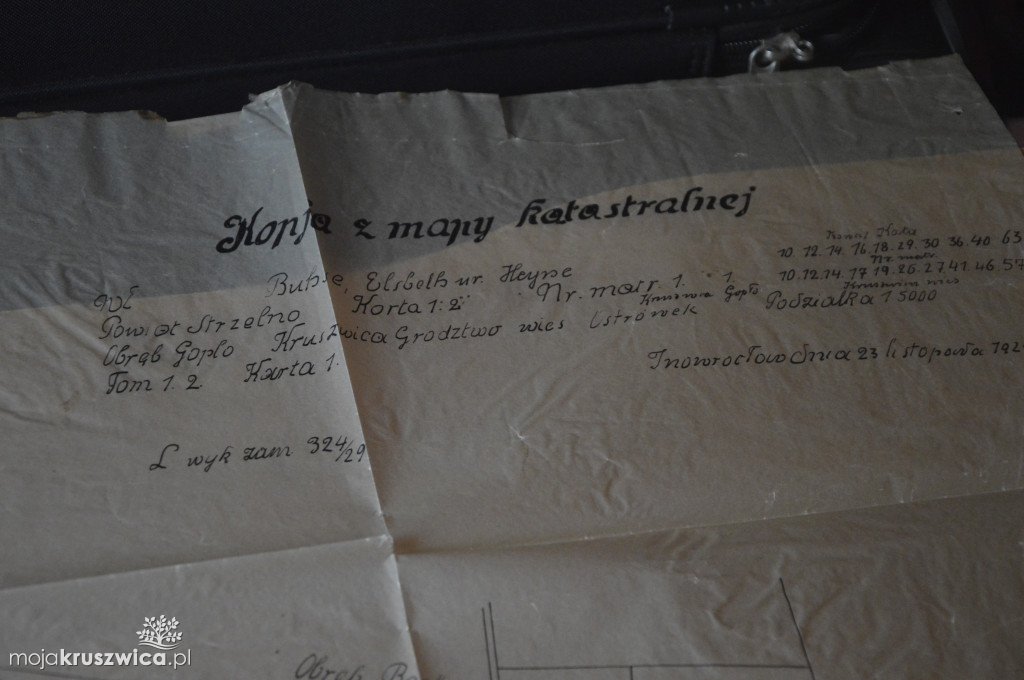 Kopja z mapy katastralnej
Elsbeth ur. Heyne
Powiat Strzelno Karta 1:2 Nr. matr. 1 1.
Obręb Gopło Kruszwica Grodztwo wieś Ostrówek Podziałka 1 5000
Tom 1. 2. Karta 1.
10. 12. 14. 16. 18. 29. 30 36. 40 63
Nr. matr.
10. 12. 14. 17 19. 26. 27. 41. 46. 57
Gopło
Inowrocław dnia 23 listopada 192
L wyk zam 324/29
Obręb
mojakruszwica.pl